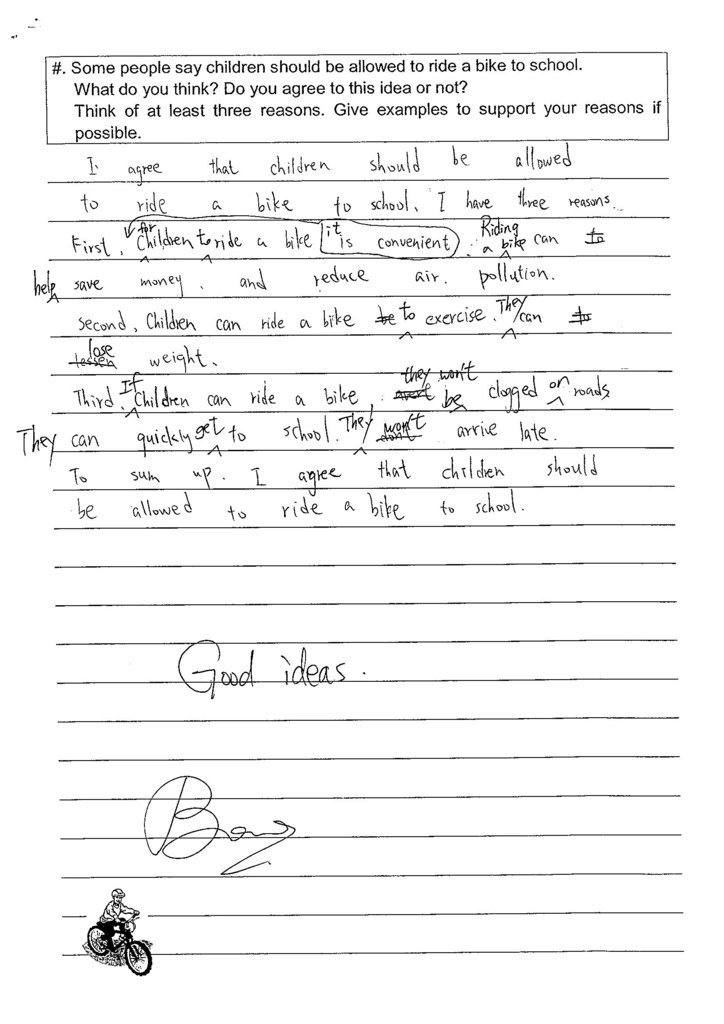 #. Some people say children should be allowed to ride a bike to school.
What do you think? Do you agree to this idea or not?
Think of at least three reasons. Give examples to support your reasons if
possible.
I agree that children should be allowed
to ride a bike to school. I have three reasons.
First, for Children to ride a bike it is convenient. Riding a bike can to
help save money, and reduce air. pollution.
second, Children can ride a bike to exercise. They can to
lessen lose weight.
Third. If Children can ride a bike, they won't be clogged on roads
They can quickly get to school. They don't won't arrive late.
To sum up. I agree that children should
be allowed to ride a bike to school.
Good ideas.